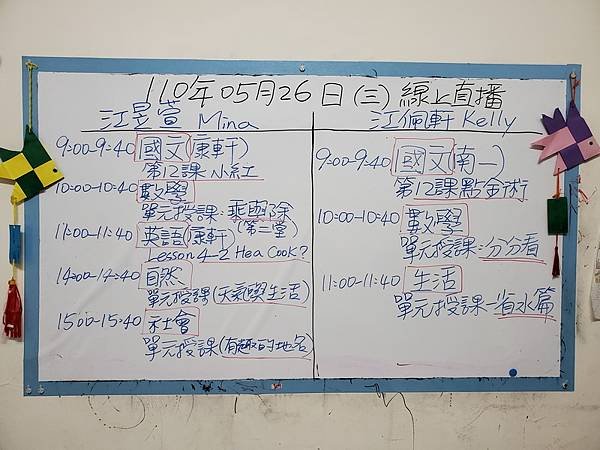 110年05月26日(三)線上直播
江昱萱 Mina
9:00-9:40 國文(康軒)
第12課 小紅
10:00-10:40 數學
單元授課:乘與除
(第二堂)
11:00-11:40 英語(康軒)
Lesson 4-2 Hea Cook?
14:00-14:40 自然
單元授課(天氣與生活)
15:00-15:40 社會
單元授課(有趣的地名)
江佩軒 Kelly
9:00-9:40 國文(南一)
第12課點金術
10:00-10:40 數學
單元授課:分分看
11:00-11:40 生活
單元授課-省水篇